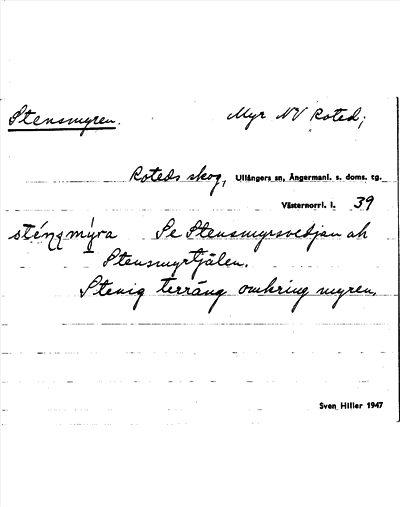 Stensmyren. Myr NV Roted;
Roteds skog, Ullångers sn, Ångermanl. s. doms. tg.
Västernorrl. l. 39
Se Stensmyrsvedjan ah
Stensmyrtjälen.
Stenig terräng omkring myren.
Sven Hiller 1947